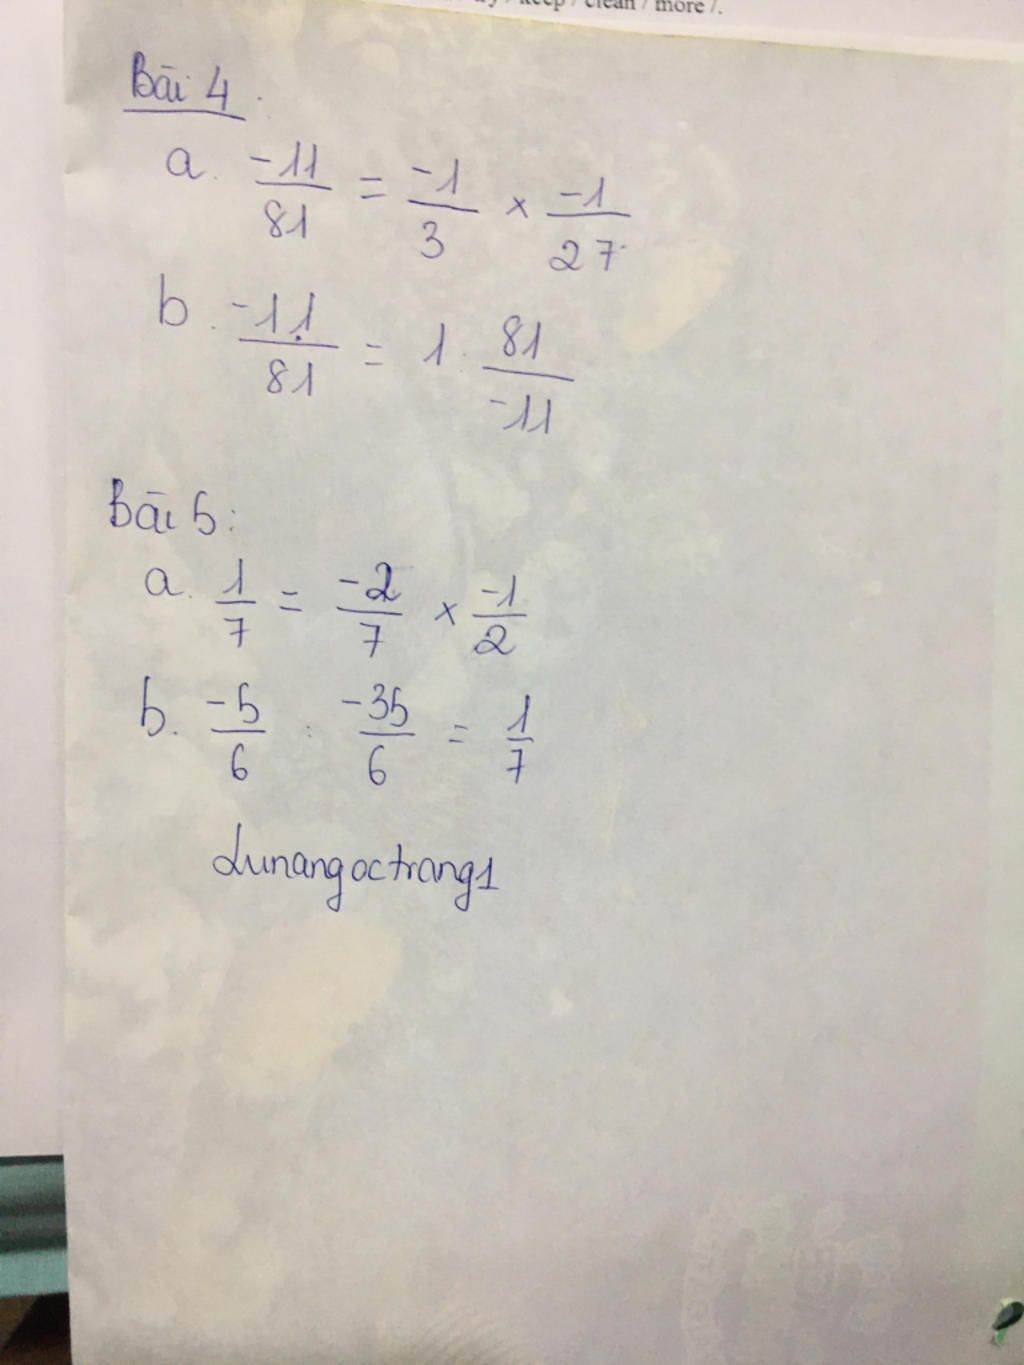 keep / clean / more /.
Bài 4.
a. -11/81 = -1/3 × -1/27
b. -11/81 = 1 : 81/-11
Bài 5:
a. 1/7 = -2/7 × -1/2
b. -5/6 : -35/6 = 1/7
Lunangoctrang1